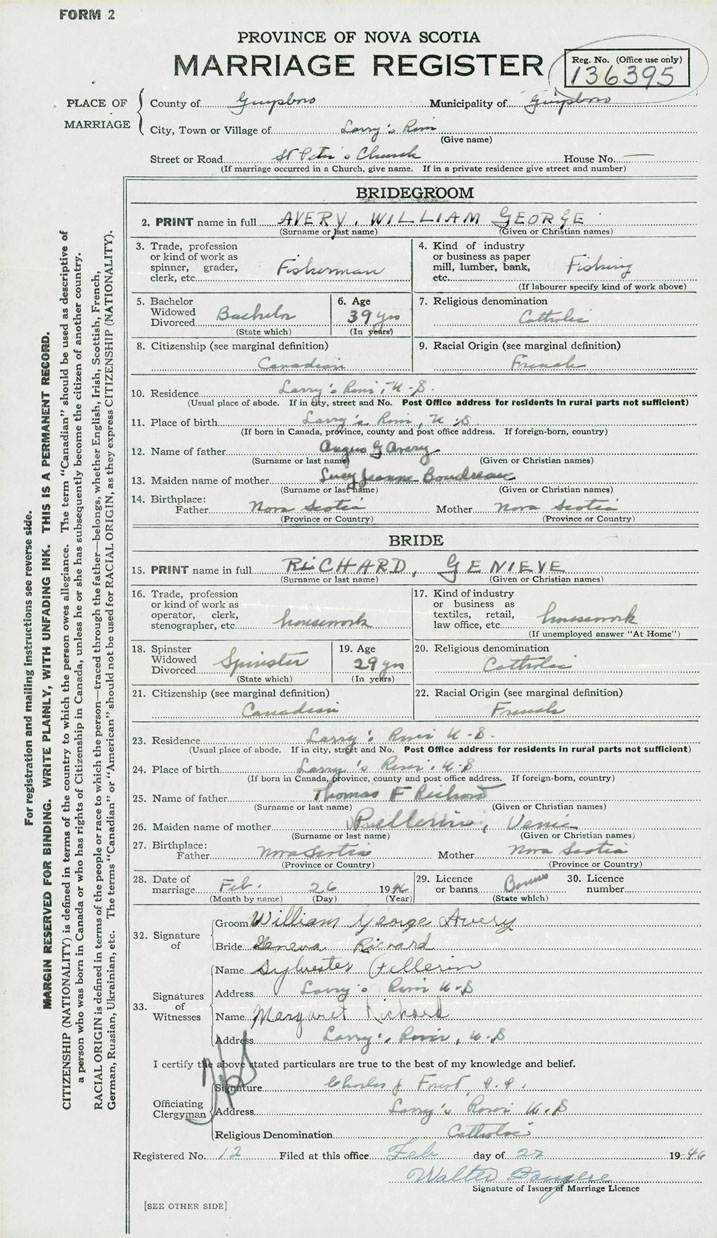 FORM 2
PROVINCE OF NOVA SCOTIA
MARRIAGE REGISTER
Reg. No. (Office use only)
136395
PLACE OF MARRIAGE
County of Guysboro Municipality of Guysboro
City, Town or Village of Larry's River
(Give name)
Street or Road St Peter's Church House No. —
(If marriage occurred in a Church, give name. If in a private residence give street and number)
BRIDEGROOM
2. PRINT name in full AVERY, WILLIAM GEORGE
(Surname or last name) (Given or Christian names)
3. Trade, profession or kind of work as spinner, grader, clerk, etc. Fisherman
4. Kind of industry or business as paper mill, lumber, bank, etc. Fishing
(If labourer specify kind of work above)
5. Bachelor Widowed Divorced Bachelor
(State which)
6. Age 39 yrs
(In years)
7. Religious denomination Catholic
8. Citizenship (see marginal definition) Canadian
9. Racial Origin (see marginal definition) French
10. Residence Larry's River, N-S.
(Usual place of abode. If in city, street and No. Post Office address for residents in rural parts not sufficient)
11. Place of birth Larry's River, N S
(If born in Canada, province, county and post office address. If foreign-born, country)
12. Name of father Angus G Avery
(Surname or last name) (Given or Christian names)
13. Maiden name of mother Lucy Jeanne Boudreau
(Surname or last name) (Given or Christian names)
14. Birthplace: Father Nova Scotia Mother Nova Scotia
(Province or Country) (Province or Country)
BRIDE
15. PRINT name in full RiCHARD, GENIEVE
(Surname or last name) (Given or Christian names)
16. Trade, profession or kind of work as operator, clerk, stenographer, etc. housework
17. Kind of industry or business as textiles, retail, law office, etc. housework
(If unemployed answer "At Home")
18. Spinster Widowed Divorced Spinster
(State which)
19. Age 29 yrs
(In years)
20. Religious denomination Catholic
21. Citizenship (see marginal definition) Canadian
22. Racial Origin (see marginal definition) French
23. Residence Larry's River N-S.
(Usual place of abode. If in city, street and No. Post Office address for residents in rural parts not sufficient)
24. Place of birth Larry's River, N-S
(If born in Canada, province, county and post office address. If foreign-born, country)
25. Name of father Thomas F Richard
(Surname or last name) (Given or Christian names)
26. Maiden name of mother Pellerin,
(Surname or last name) (Given or Christian names)
27. Birthplace: Father Nova Scotia Mother Nova Scotia
(Province or Country) (Province or Country)
28. Date of marriage Feb. 26 1946
(Month by name) (Day) (Year)
29. Licence or banns Banns
(State which)
30. Licence number
32. Signature of
Groom William George Avery
Bride Geneva Richard
33. Signatures of Witnesses
Name Sylvester Pellerin
Address Larry's River N-S
Name Margaret Richard
Address Larry's River, N-S
I certify the above stated particulars are true to the best of my knowledge and belief.
Officiating Clergyman
Signature Charles J Forest, P.P.
Address Larry's River N-S
Religious Denomination Catholic
Registered No. 12 Filed at this office Feb day of 27 1946
Walter
Signature of Issuer of Marriage Licence
[SEE OTHER SIDE]
For registration and mailing instructions see reverse side.
MARGIN RESERVED FOR BINDING. WRITE PLAINLY, WITH UNFADING INK. THIS IS A PERMANENT RECORD.
CITIZENSHIP (NATIONALITY) is defined in terms of the country to which the person owes allegiance. The term "Canadian" should be used as descriptive of
a person who was born in Canada or who has rights of Citizenship in Canada, unless he or she has subsequently become the citizen of another country.
RACIAL ORIGIN is defined in terms of the people or race to which the person—traced through the father—belongs, whether English, Irish, Scottish, French,
German, Russian, Ukrainian, etc. The terms "Canadian" or "American" should not be used for RACIAL ORIGIN, as they express CITIZENSHIP (NATIONALITY).